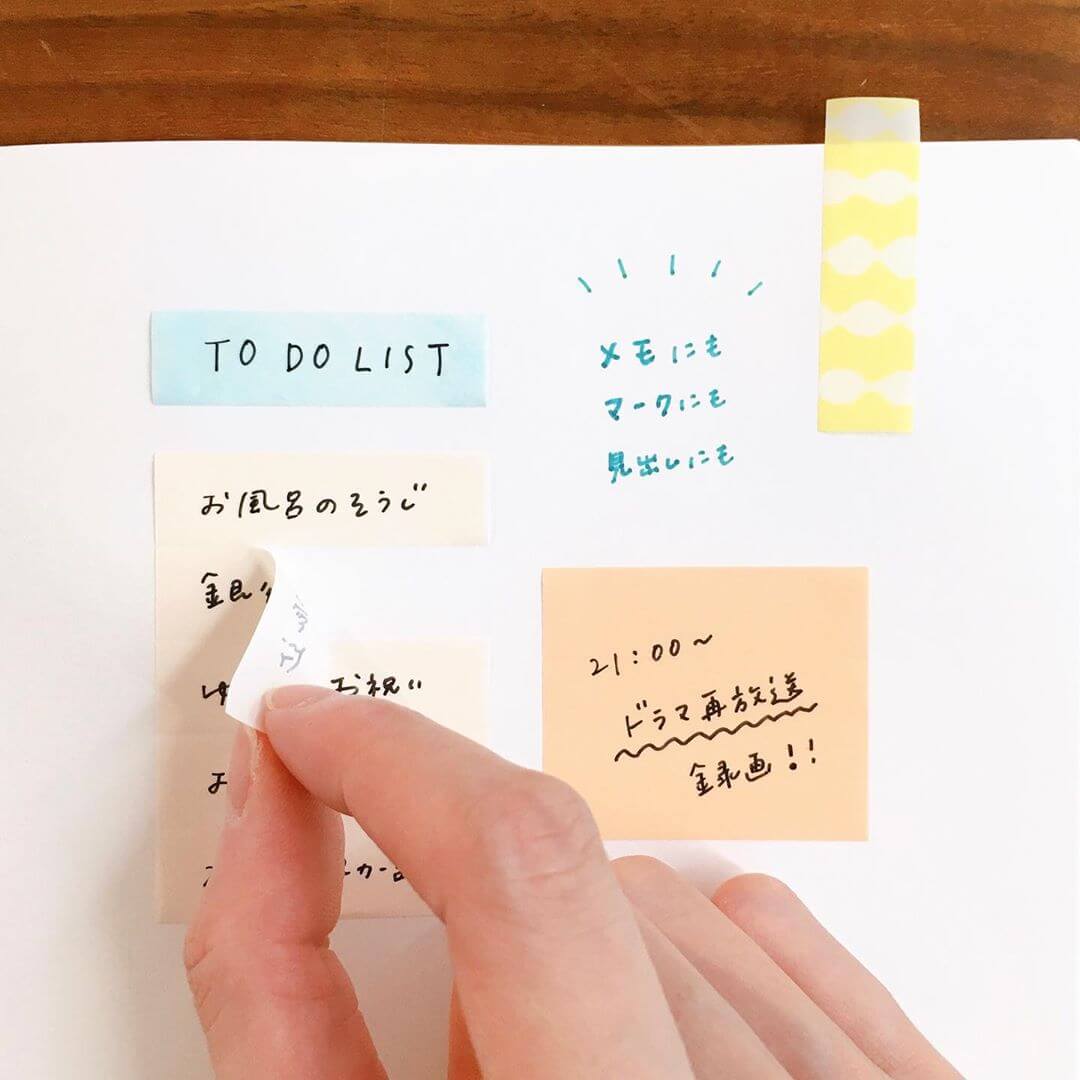 TO DO LIST
お風呂のそうじ
銀
ゆ お祝い
メモにも
マークにも
見出しにも
21:00〜
ドラマ再放送
録画!!